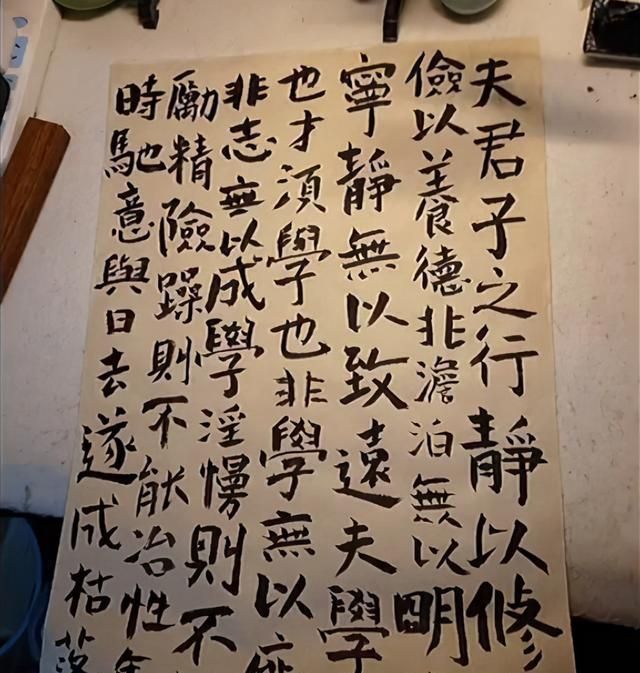 夫君子之行靜以修
儉以養德非澹泊無以明
寧靜無以致遠夫學
也才須學也非學無以
非志無以成學淫慢則不
勵精險躁則不能冶性
時馳意與日去遂成枯落